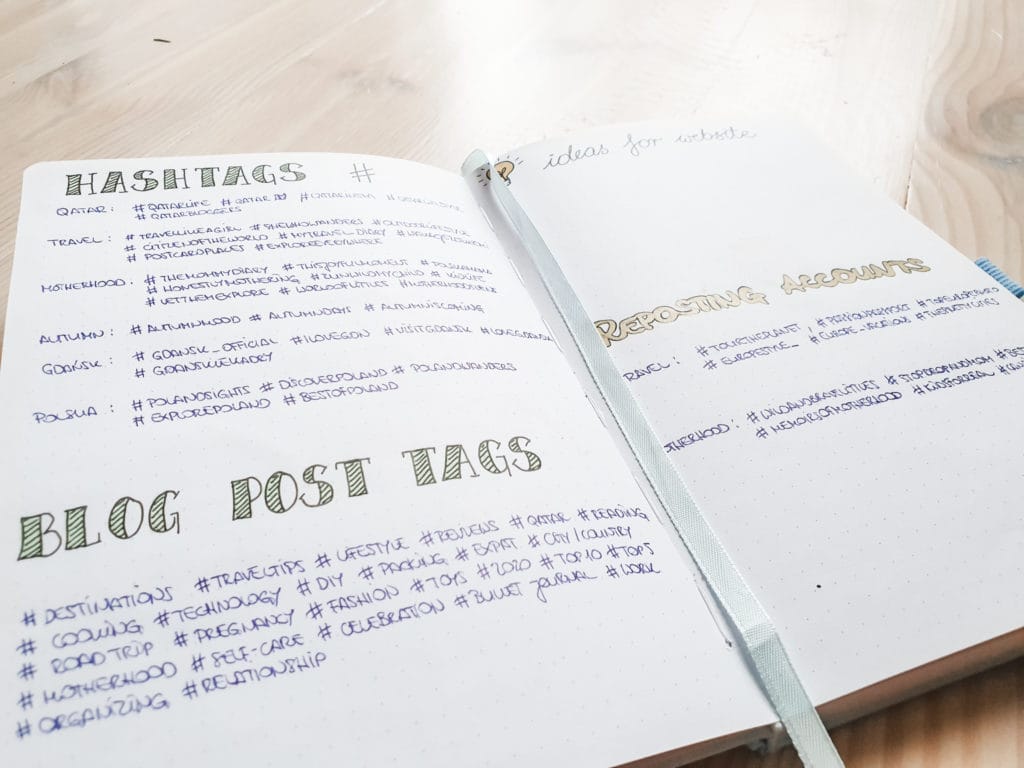 HASHTAGS #
QATAR: #QATARLIFE #QATAR
#QATARBLOGGERS
TRAVEL: #TRAVELLIKEAGIRL #SHEWHOWANDERS #OUTDOORLIFESTYLE
#CITIZENOFTHEWORLD #MYTRAVELDIARY
#POSTCARDPLACES #EXPLOREEVERYWHERE
MOTHERHOOD: #THEMOMMYDIARY #THISJOYFULMOMENT #POLSKAMAMA
#HONESTLYMOTHERING #RUNWILDMYCHILD
#LETTHEMEXPLORE #WORLDOFLITTLES
AUTUMN: #AUTUMNMOOD #AUTUMNDAYS #AUTUMNISCOMING
GDAŃSK: #GDANSK_OFFICIAL #ILOVEGDN #VISITGDANSK
#GDANSKIEKADRY
POLSKA: #POLANDSIGHTS #DISCOVERPOLAND #POLANDWANDERS
#EXPLOREPOLAND #BESTOFPOLAND
BLOG POST TAGS
#DESTINATIONS #TRAVELTIPS #LIFESTYLE #REVIEWS #QATAR #READING
#COOKING #TECHNOLOGY #DIY #PACKING #EXPAT #CITY/COUNTRY
#ROAD TRIP #PREGNANCY #FASHION #TOYS #2020 #TOP10 #TOP5
#MOTHERHOOD #SELF-CARE #CELEBRATION #BULLET JOURNAL #WORK
#ORGANIZING #RELATIONSHIP
ideas for website
REPOSTING ACCOUNTS
RAVEL: #TOURTHEPLANET, #PASSIONPASSPORT
#EUROPESTYLE_ #EUROPE_VACATION #THEPRETTYCITIES
OTHERHOOD: #WILDANDBRAVELITTLES #STOPDROPANDMOM
#MEMOIRSOFMOTHERHOOD #KIDSFORREAL